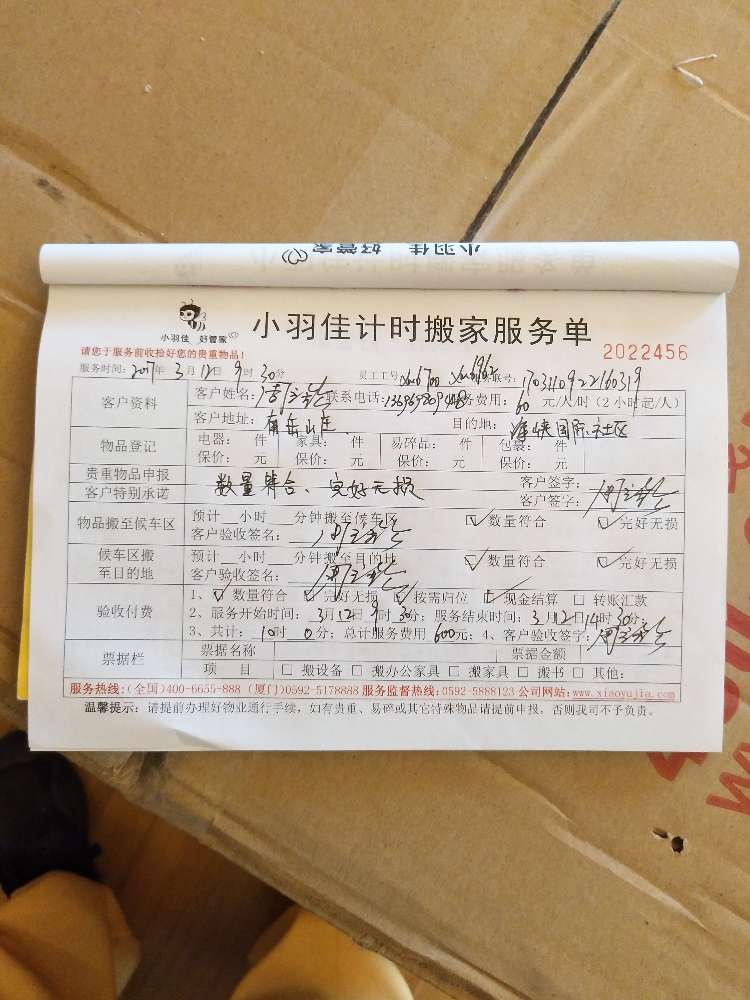 小羽佳 好管家
小羽佳 好管家
小羽佳计时搬家服务单
请您于服务前收拾好您的贵重物品！
2022456
服务时间：2017年3月12日9时30分 员工工号 联号：
客户资料 客户姓名： 联系电话： 服务费用：60元/人/时（2小时起/人）
客户地址： 目的地：海峡国际社区
物品登记 电器： 件 家具： 件 易碎品： 件 包装： 件
保价： 元 保价： 元 保价： 元 保价： 元
贵重物品申报 客户签字：
客户特别承诺 数量符合、完好无损 客户签字：
物品搬至候车区 预计 小时 分钟搬至候车区 ☑数量符合 ☑完好无损
客户验收签名：
候车区搬至目的地 预计 小时 分钟搬至目的地 ☑数量符合 ☑完好无损
客户验收签名：
验收付费 1、☑数量符合 ☑完好无损 ☑按需归位 ☑现金结算 □转账汇款
2、服务开始时间：3月12日9时30分；服务结束时间：3月12日14时30分；
3、共计：10时0分；总计服务费用600元；4、客户验收签字：
票据栏 票据名称 票据金额
项 目 □搬设备 □搬办公家具 □搬家具 □搬书 □其他：
服务热线：（全国）400-6655-888（厦门）0592-5178888 服务监督热线：0592-5888123 公司网站：www.xiaoyujia.com
温馨提示：请提前办理好物业通行手续，如有贵重、易碎或其它特殊物品请提前申报，否则我司不予负责。